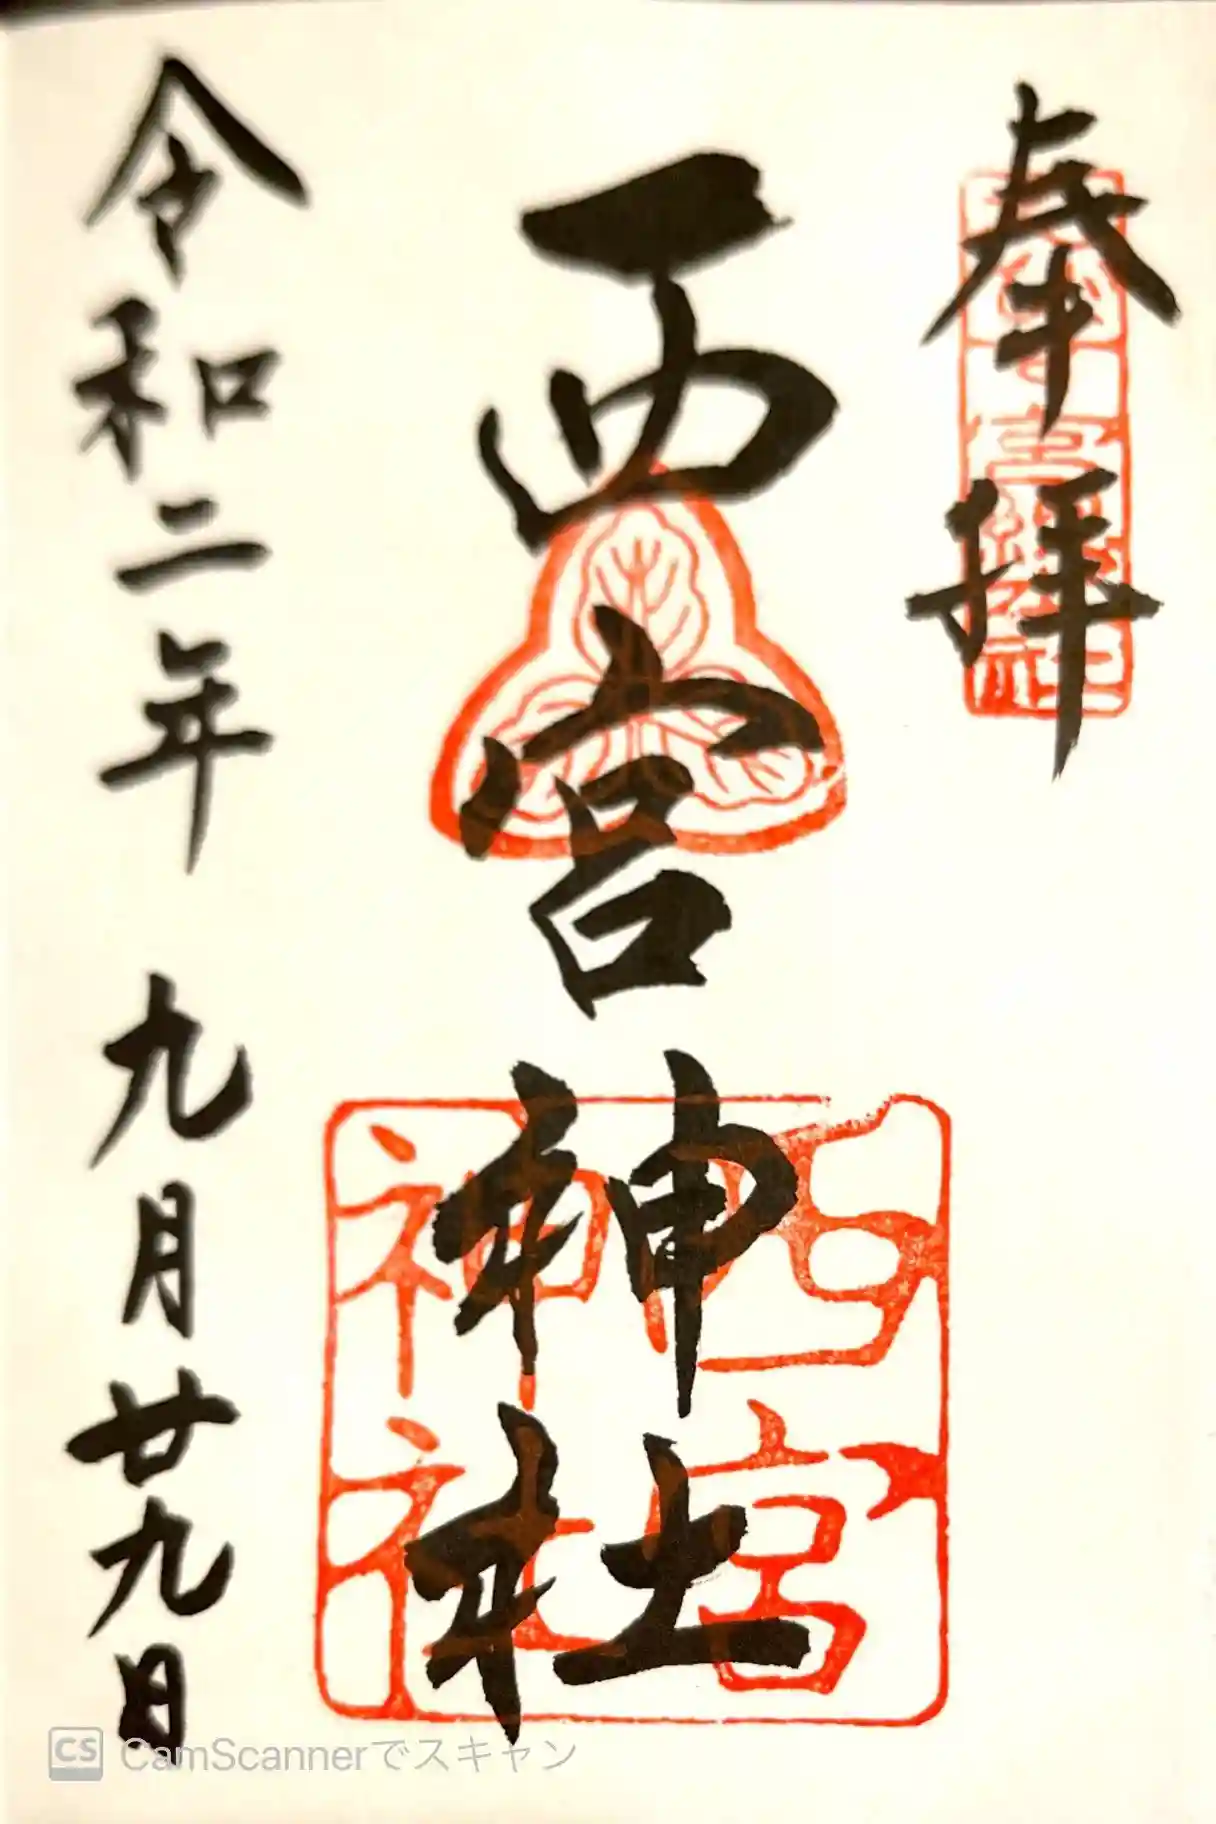 奉拝
西宮神社
西宮神社
令和二年 九月廿九日
CS CamScannerでスキャン